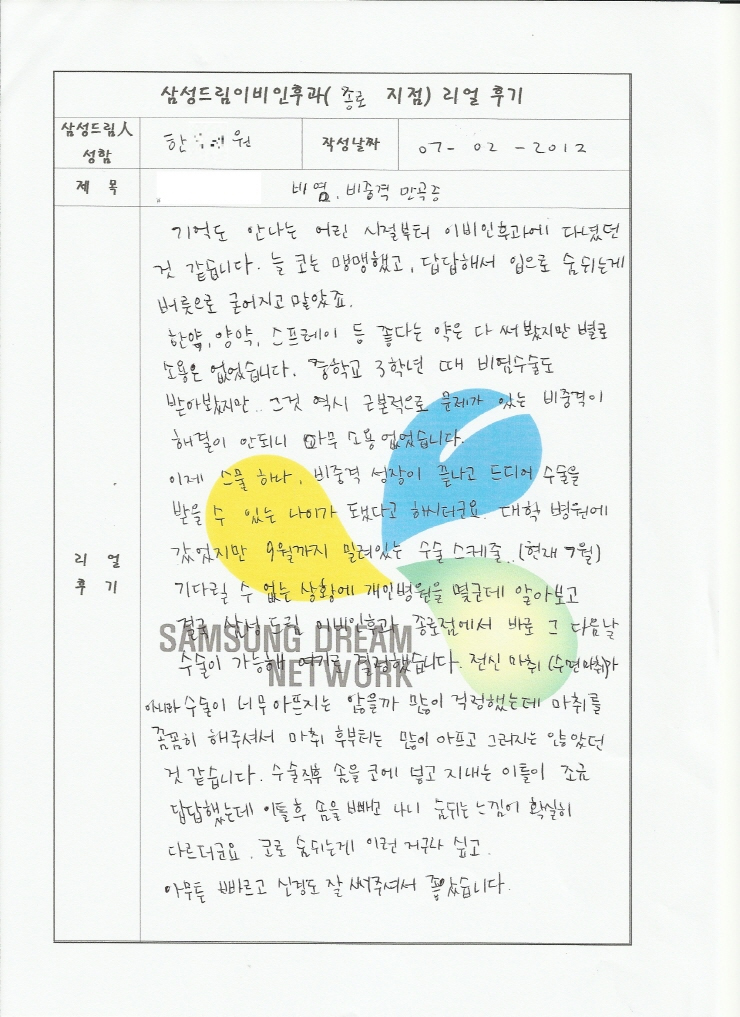 삼성드림이비인후과( 종로 지점) 리얼 후기
삼성드림人
성함
한 원
작성날짜
07- 02 - 2012
제 목
비염, 비중격 만곡증
기억도 안나는 어린 시절부터 이비인후과에 다녔던
것 같습니다. 늘 코는 맹맹했고, 답답해서 입으로 숨쉬는게
버릇으로 굳어지고 말았죠.
한약, 양약, 스프레이 등 좋다는 약은 다 써봤지만 별로
소용은 없었습니다. 중학교 3학년 때 비염수술도
받아봤지만.. 그것 역시 근본적으로 문제가 있는 비중격이
해결이 안되니 아무 소용없었습니다.
이제 스물 하나, 비중격 성장이 끝나고 드디어 수술을
받을 수 있는 나이가 됐다고 하시더군요. 대학 병원에
갔었지만 9월까지 밀려있는 수술 스케줄..(현재 7월)
기다릴 수 없는 상황에 개인병원을 몇군데 알아보고
결국 삼성 드림 이비인후과 종로점에서 바로 그 다음날
수술이 가능해 여기로 결정했습니다. 전신 마취 (수면마취)가
아니라 수술이 너무 아프지는 않을까 많이 걱정했는데 마취를
꼼꼼히 해주셔서 마취 후부터는 많이 아프고 그러지는 않았던
것 같습니다. 수술직후 솜을 코에 넣고 지내는 이틀이 조금
답답했는데 이틀후 솜을 빼고 나니 숨쉬는 느낌이 확실히
다르더군요. 코로 숨쉬는게 이런 거구나 싶고.
아무튼 빠르고 신경도 잘 써주셔서 좋았습니다.
리 얼
후 기
SAMSUNG DREAM
NETWORK